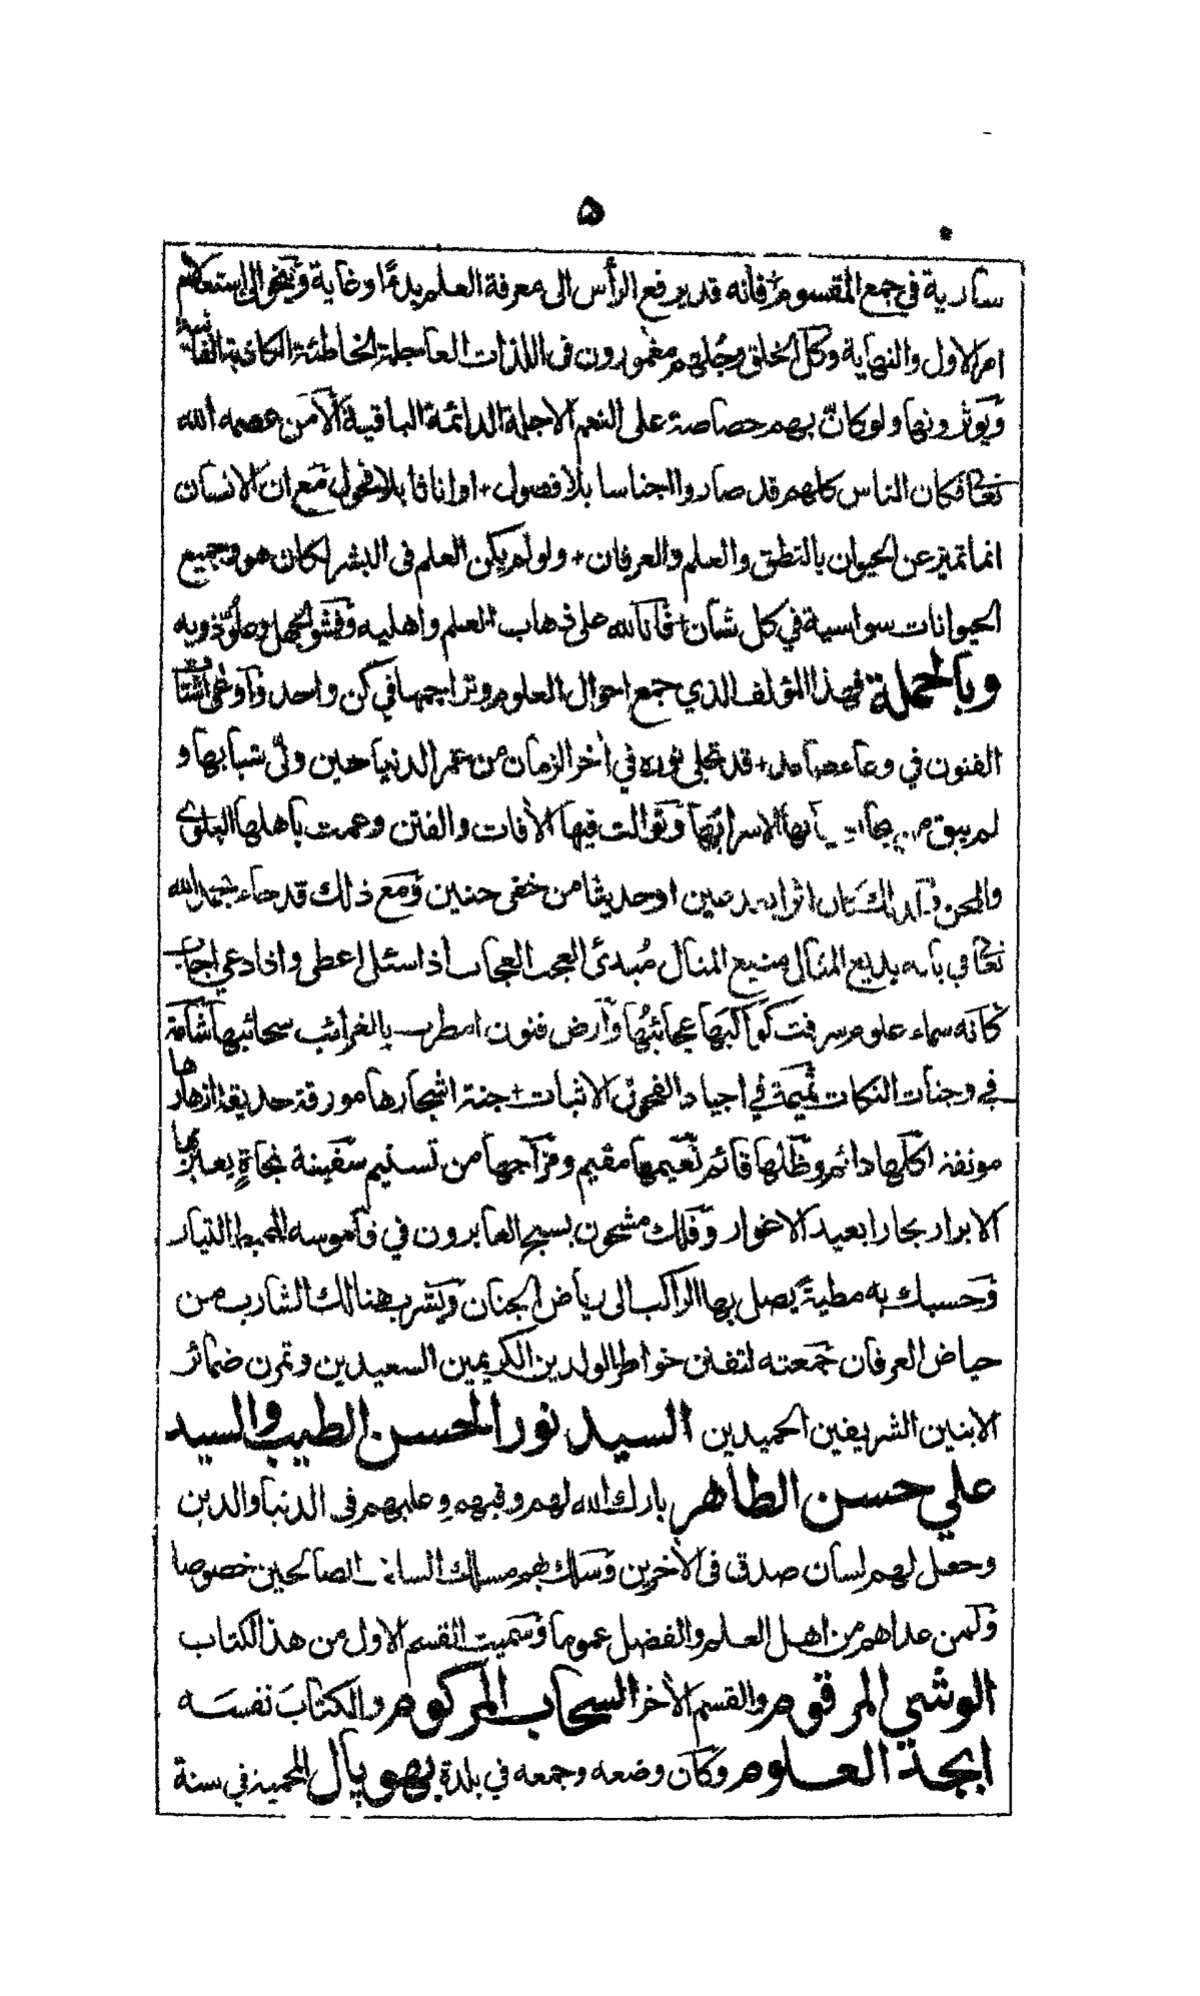 ۵
سارية في جمع المقسوم فانه قد يرفع الرأس الى معرفة العلم بدءًا وغاية وينحو الى استعلام
امر الاول والنهاية وكل الخلق وجلهم مغمورون في اللذات العاجلة الخاطئة الكاذبة الفانية
ويؤثرونها ولو كان بهم خصاصة على النعم الاجلة الدائمة الباقية الا من عصمه الله
تعالى فكان الناس كلهم قد صاروا اجناسا بلا فصول + او اناثا بلا فحول مع ان الانسان
انما تميز عن الحيوان بالنطق والعلم والعرفان + ولو لم يكن العلم في البشر لكان هو وجميع
الحيوانات سواسية في كل شان + فانا لله على ذهاب العلم واهليه وفشو الجهل وعلو ذويه
وبالجملة فهذا المؤلف الذي جمع احوال العلوم وتراجمها في كن واحد وآوعى اشتات
الفنون في وعاء صامد + قد تجلى نوره في أخر الزمان من عمر الدنيا حين ولى شبابها و
لم يبق الاسرابها وتوالت فيها الأفات والفتن وعمت باهلها البلوى
والمحن اثرا بعد عين او حديثا من خفي حنين ومع ذلك قد جاء بحمد الله
تعالى في بابه بديع المثال منيع المنال مبدئ العجب العجاب اذا سئل اعطى واذا دعي اجاب
كانه سماء علوم سرفت كواكبها عجائبها وارض فنون امطرت بالغرائب سحائبها شامة
في وجنات النكات تميمة في اجياد الفحول الاثبات + جنة اشجارها مورقة حديقة ازهارها
مونقة اكلها دائم وظلها قائم نعيمها مقيم ومزاجها من تسنيم سفينة نجاة يعبر بها
الابرار بحارا بعيد الاغوار وفلك مشحون يسبح العابرون في قاموسه المحيط التيار
وحسبك به مطية يصل بها الراكب الى رياض الجنان ويشرب هنالك الشارب من
حياض العرفان جمعته لتفنن خواطر الولدين الكريمين السعيدين وتمرن ضمائر
الابنين الشريفين الحميدين السيد نور الحسن الطيب والسيد
علي حسن الطاهر بارك الله لهم وفيهم وعليهم في الدنيا والدين
وجعل لهم لسان صدق في الأخرين وسلك بهم مسالك السلف الصالحين خصوصا
ولمن عداهم من اهل العلم والفضل عموما وسميت القسم الاول من هذا الكتاب
الوشي المرقوم والقسم الأخر السحاب المركوم والكتاب نفسه
ابجد العلوم وكان وضعه وجمعه في بلدة بهوپال المحمية في سنة